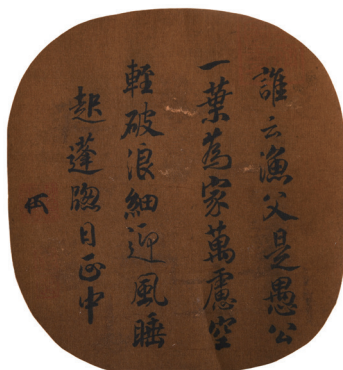 誰云漁父是愚公
一葉為家萬慮空
輕破浪細迎風睡
起蓬窓日正中